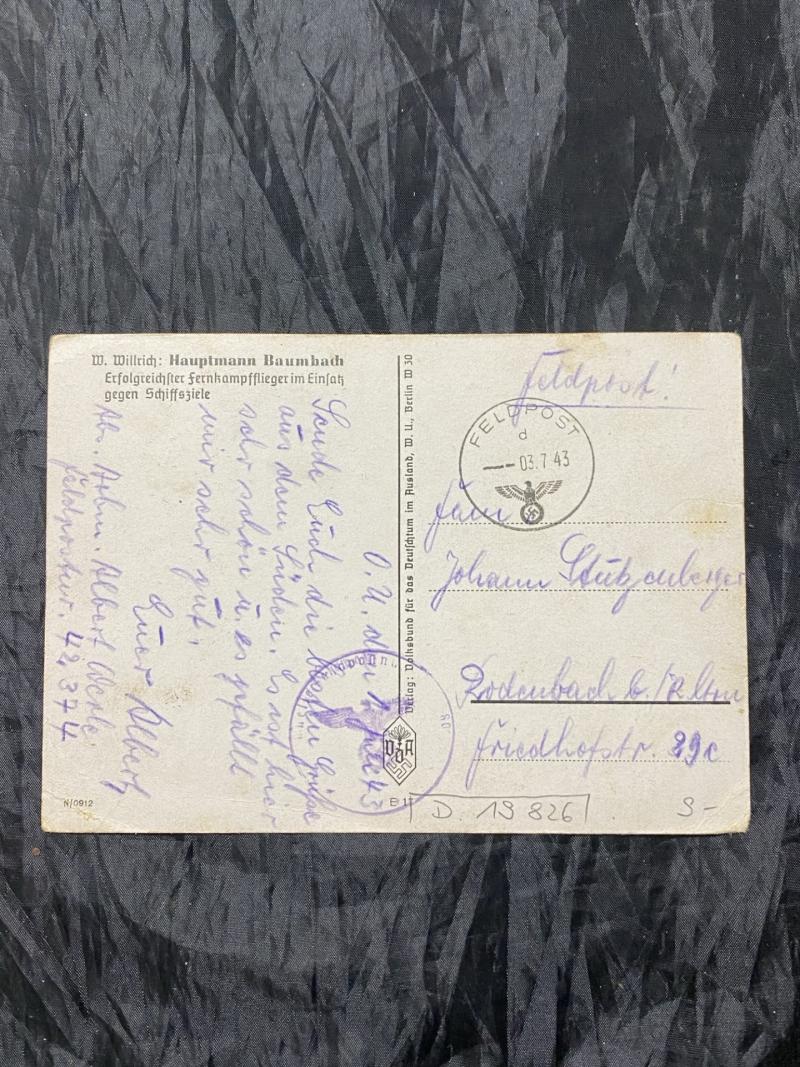 W. Willrich: Hauptmann Baumbach
Erfolgreichster Fernkampfflieger im Einsatz
gegen Schiffsziele
O. U. den Juli 43
Sende Euch die besten Grüße
aus dem Süden. Es ist hier
sehr schön u. es gefällt
mir sehr gut.
Euer Albert
Abs. Albert
Feldpostnr. 42 374
N/0912
Verlag: Volksbund für das Deutschtum im Ausland, W. U., Berlin W 30
VDA
Feldpost!
FELDPOST
d
03.7.43
Fam.
Johann Stutzenberger
Rodenbach b.
Friedhofstr. 29c
D. 19 826
9-